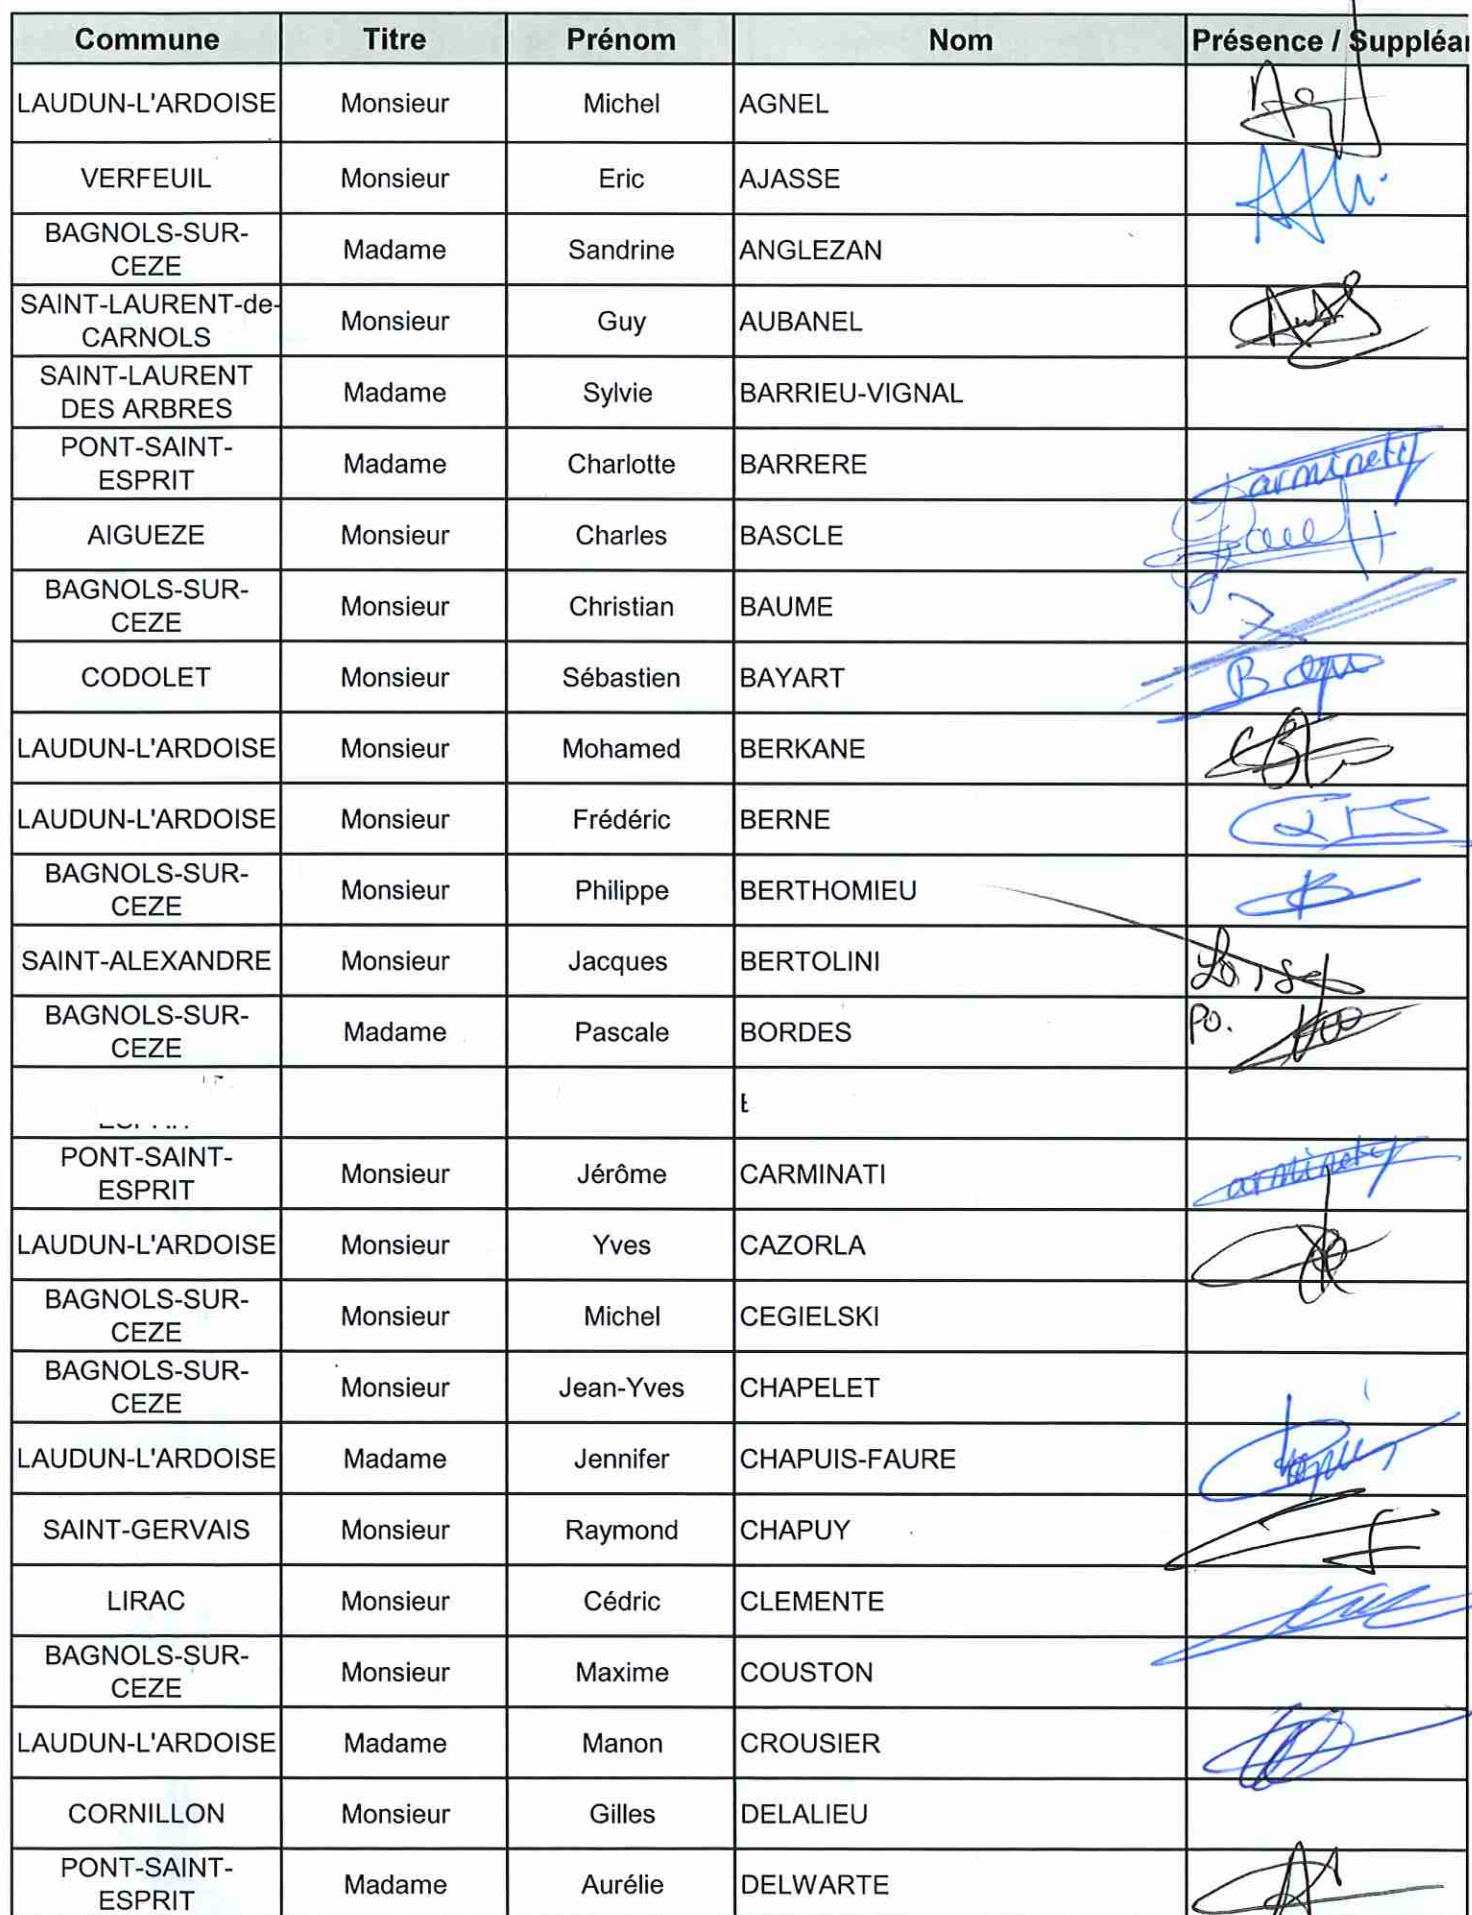 Commune Titre Prénom Nom Présence / Suppléa
LAUDUN-L'ARDOISE Monsieur Michel AGNEL
VERFEUIL Monsieur Eric AJASSE
BAGNOLS-SUR-
CEZE Madame Sandrine ANGLEZAN
SAINT-LAURENT-de-
CARNOLS Monsieur Guy AUBANEL
SAINT-LAURENT
DES ARBRES Madame Sylvie BARRIEU-VIGNAL
PONT-SAINT-
ESPRIT Madame Charlotte BARRERE
AIGUEZE Monsieur Charles BASCLE
BAGNOLS-SUR-
CEZE Monsieur Christian BAUME
CODOLET Monsieur Sébastien BAYART
LAUDUN-L'ARDOISE Monsieur Mohamed BERKANE
LAUDUN-L'ARDOISE Monsieur Frédéric BERNE
BAGNOLS-SUR-
CEZE Monsieur Philippe BERTHOMIEU
SAINT-ALEXANDRE Monsieur Jacques BERTOLINI
BAGNOLS-SUR-
CEZE Madame Pascale BORDES PO.
PONT-SAINT-
ESPRIT Monsieur Jérôme CARMINATI
LAUDUN-L'ARDOISE Monsieur Yves CAZORLA
BAGNOLS-SUR-
CEZE Monsieur Michel CEGIELSKI
BAGNOLS-SUR-
CEZE Monsieur Jean-Yves CHAPELET
LAUDUN-L'ARDOISE Madame Jennifer CHAPUIS-FAURE
SAINT-GERVAIS Monsieur Raymond CHAPUY
LIRAC Monsieur Cédric CLEMENTE
BAGNOLS-SUR-
CEZE Monsieur Maxime COUSTON
LAUDUN-L'ARDOISE Madame Manon CROUSIER
CORNILLON Monsieur Gilles DELALIEU
PONT-SAINT-
ESPRIT Madame Aurélie DELWARTE